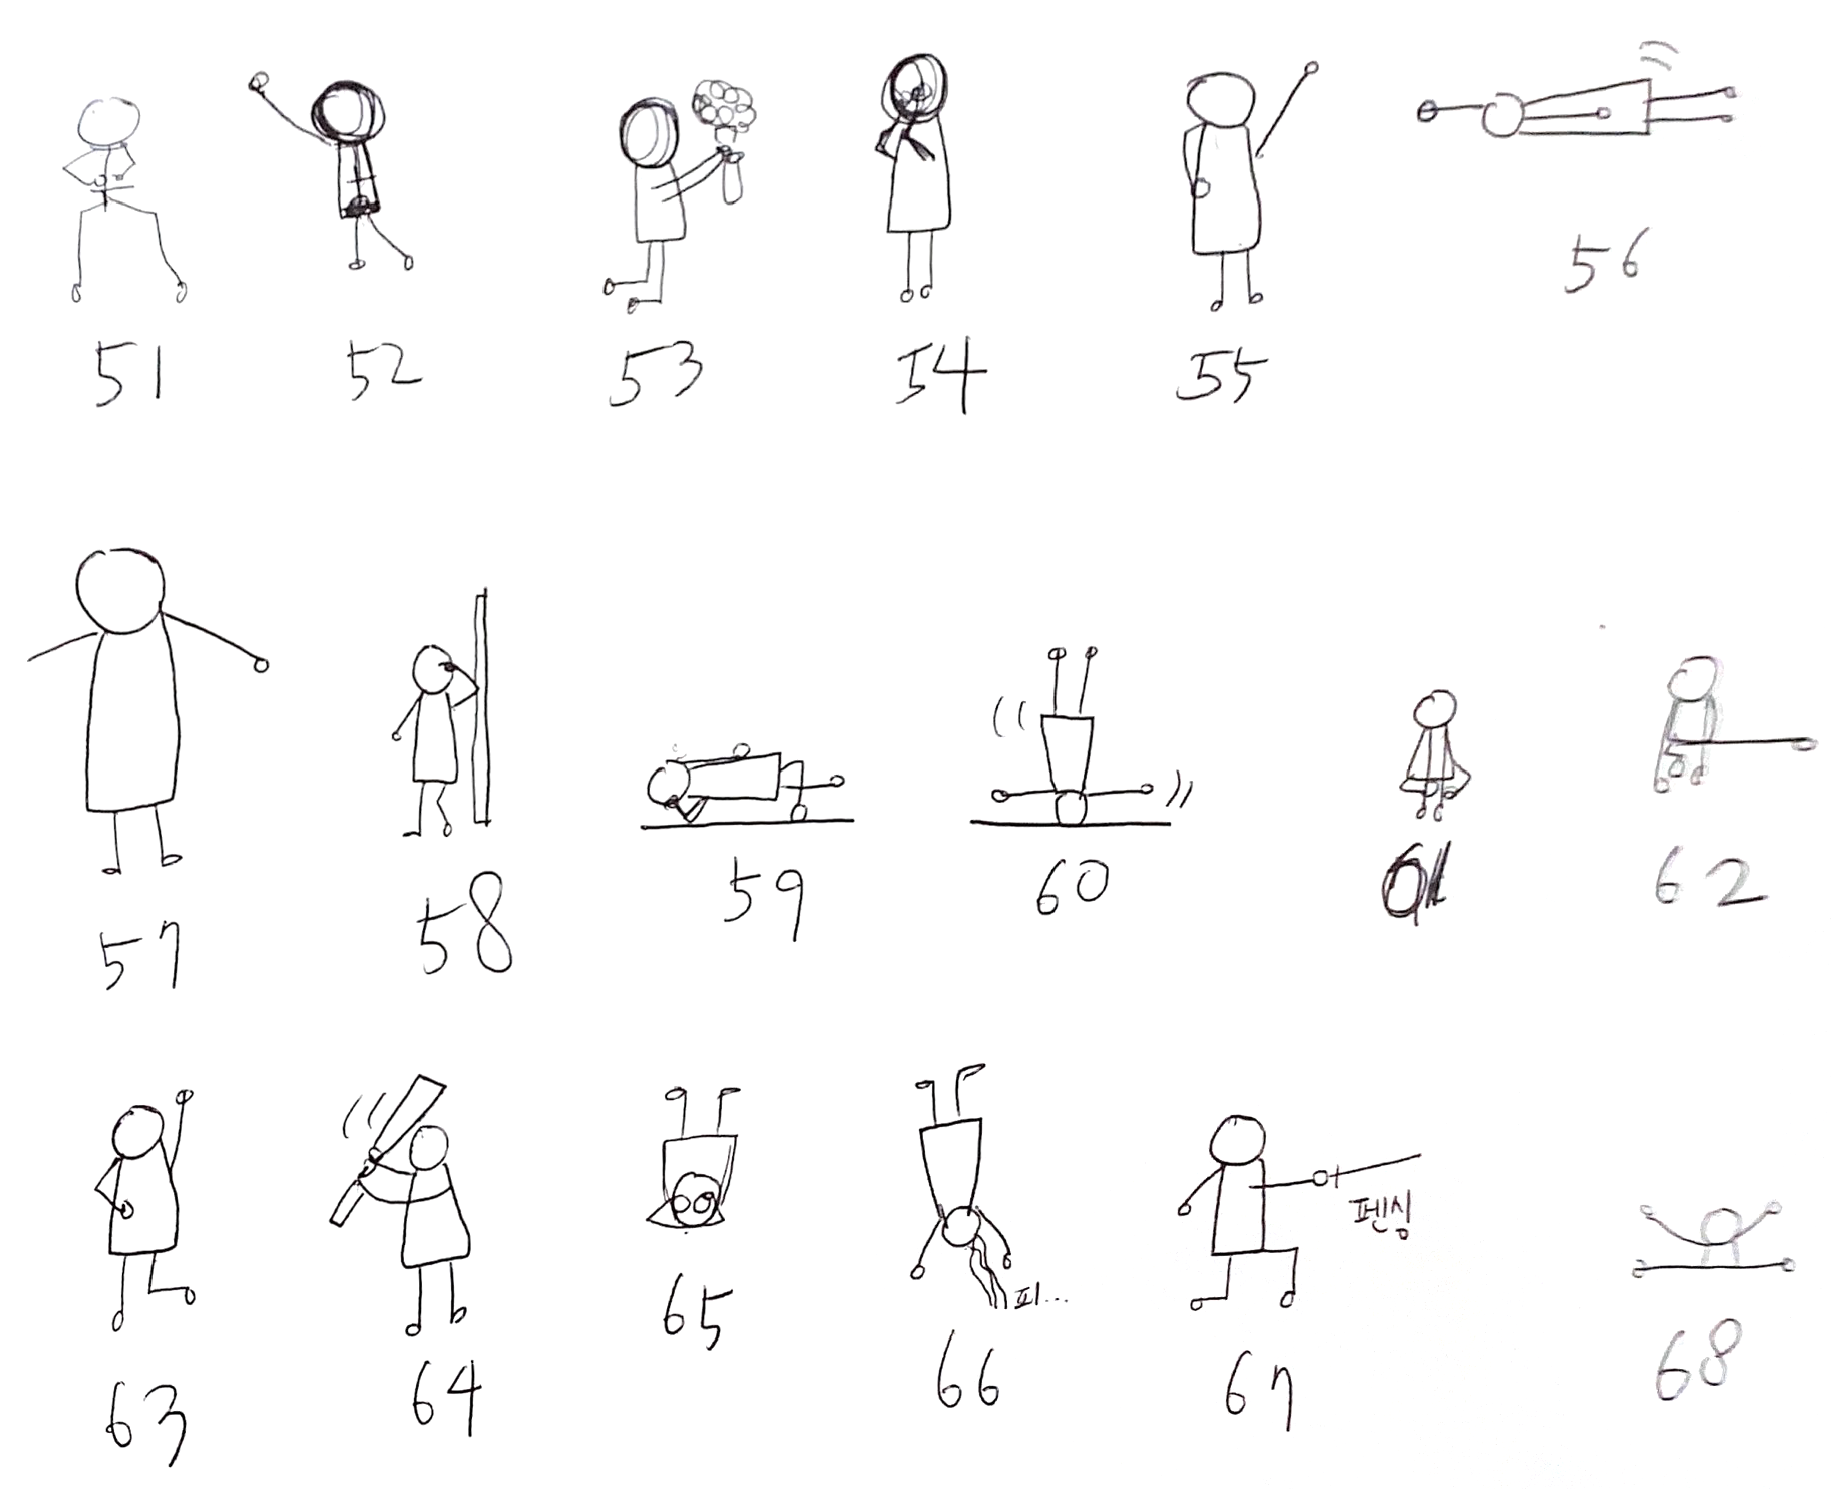 51 52 53 54 55 56
57 58 59 60 61 62
펜싱
피...
63 64 65 66 67 68